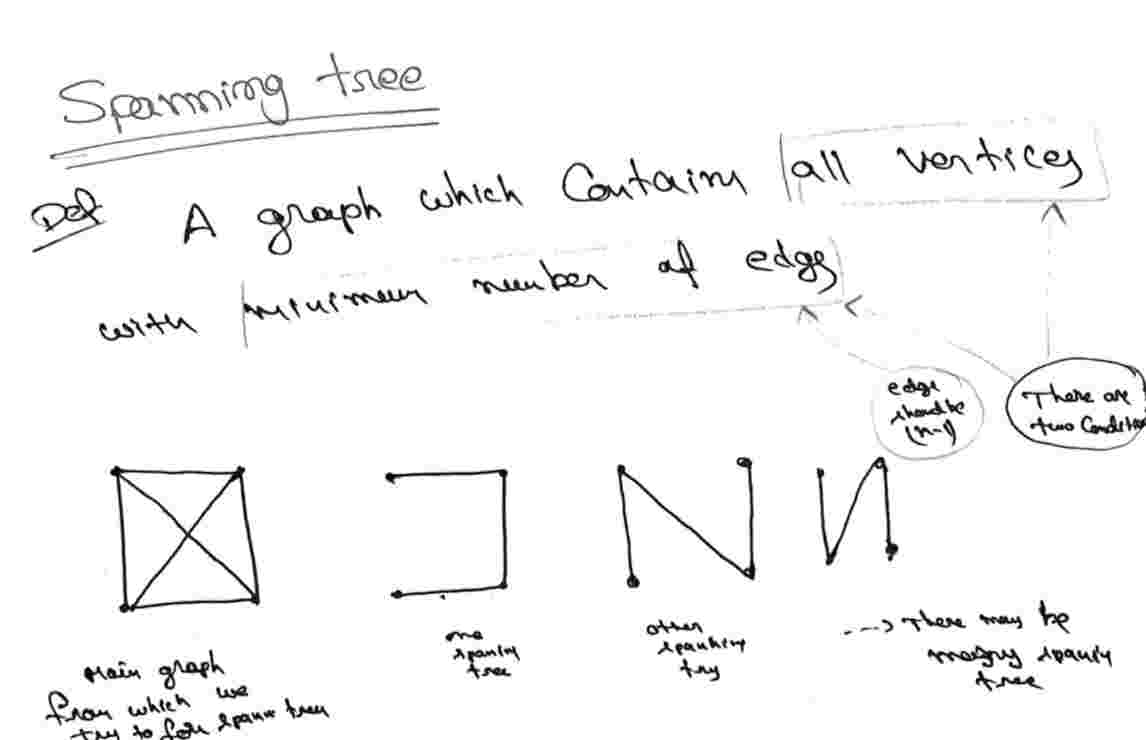 Spanning tree
Def A graph which Contains all vertices
with minimum number of edge
edge
should be
(n-1)
There are
two Condition
one
spanin
tree
other
spanning
try
---> There may be
many spanin
tree
Main graph
from which we
try to for spann tree